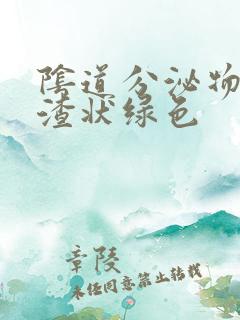 陰道分泌物
渣状绿色
章陵
未经同意禁止转载